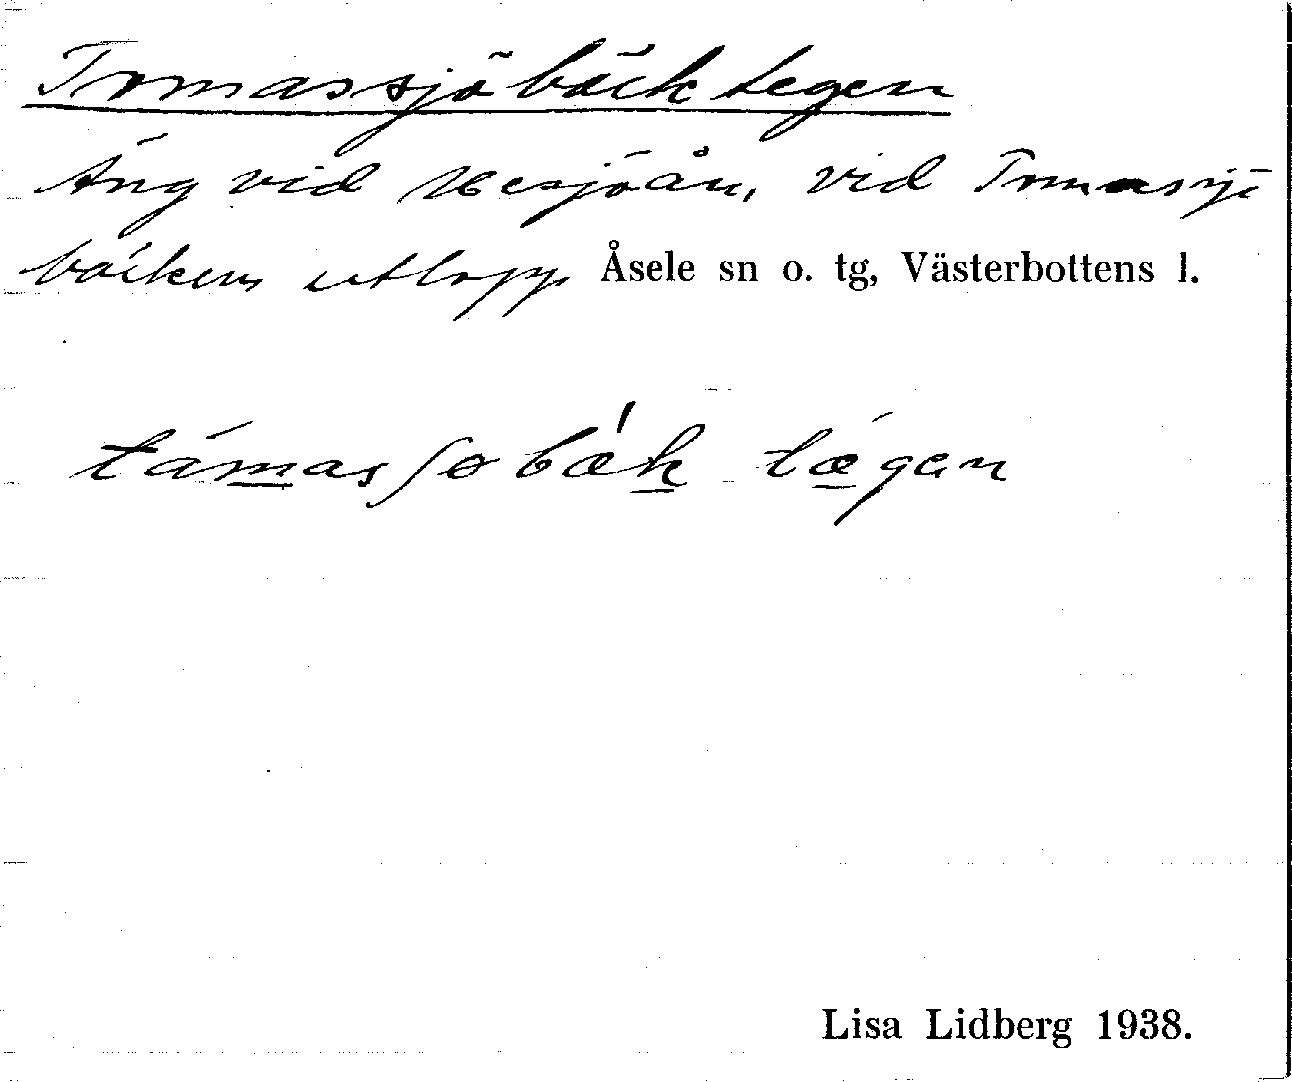 Tomassjöbäcktegen
Äng vid Hesjöån, vid Tomassjö
bäckens utlopp Åsele sn o. tg, Västerbottens l.
támasʃobǽk tǽgan
Lisa Lidberg 1938.